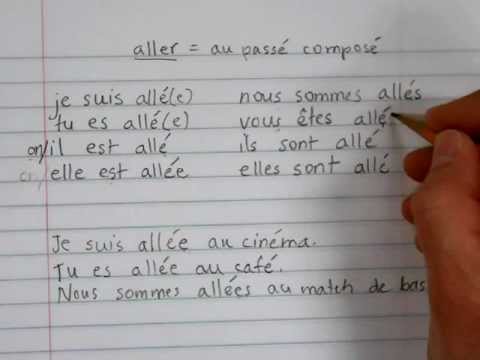 aller = au passé composé
je suis allé(e) nous sommes allés
tu es allé(e) vous êtes allé
on/il est allé ils sont allé
elle est allée elles sont allé
Je suis allée au cinéma.
Tu es allée au café.
Nous sommes allées au match de bas